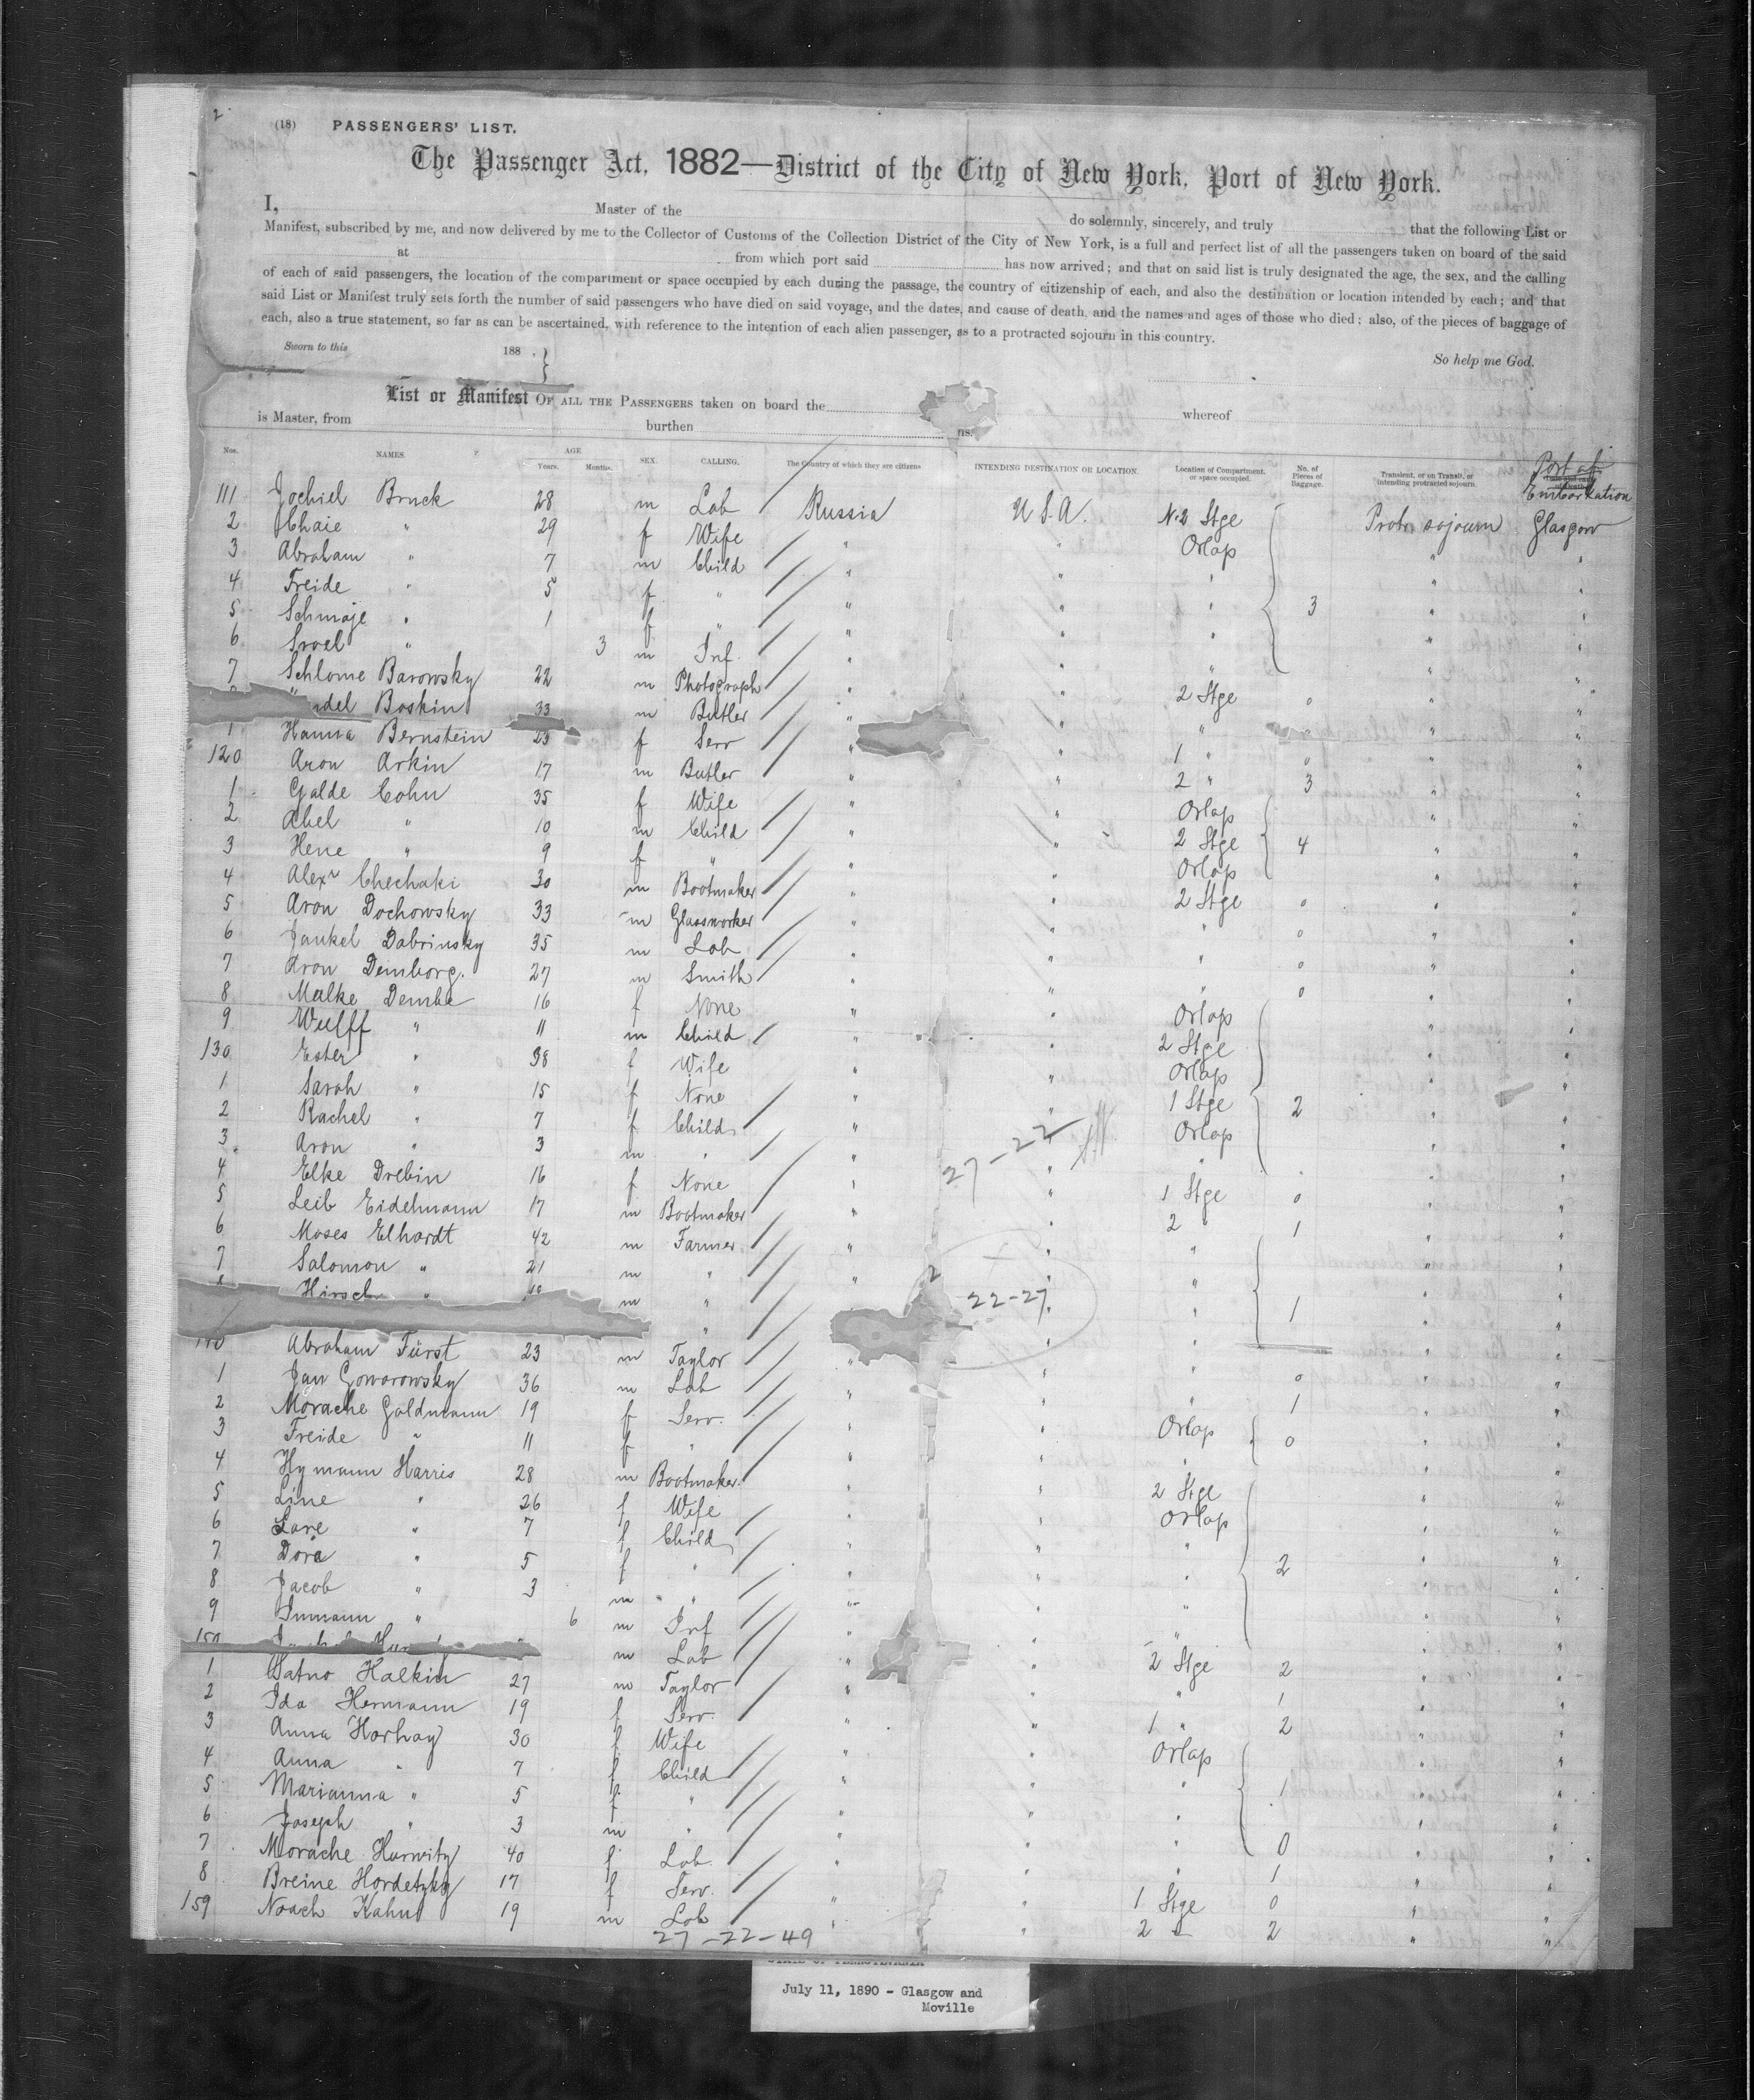 2
(18) PASSENGERS' LIST.
The Passenger Act, 1882—District of the City of New York, Port of New York.
I, Master of the do solemnly, sincerely, and truly that the following List or
Manifest, subscribed by me, and now delivered by me to the Collector of Customs of the Collection District of the City of New York, is a full and perfect list of all the passengers taken on board of the said
at from which port said has now arrived; and that on said list is truly designated the age, the sex, and the calling
of each of said passengers, the location of the compartment or space occupied by each during the passage, the country of citizenship of each, and also the destination or location intended by each; and that
said List or Manifest truly sets forth the number of said passengers who have died on said voyage, and the dates, and cause of death, and the names and ages of those who died; also, of the pieces of baggage of
each, also a true statement, so far as can be ascertained, with reference to the intention of each alien passenger, as to a protracted sojourn in this country.
Sworn to this 188 . } So help me God.
List or Manifest OF ALL THE PASSENGERS taken on board the whereof
is Master, from burthen ns.
Nos. NAMES. AGE Years. Months. SEX. CALLING. The Country of which they are citizens INTENDING DESTINATION OR LOCATION. Location of Compartment, or space occupied. No. of Pieces of Baggage. Transient, or on Transit, or intending protracted sojourn. Port of Embarkation
111 Jochiel Bruck 28 m Lab Russia U.S.A. No.2 Stge Protr. sojourn Glasgow
2 Chaie " 29 f Wife " " Orlop " "
3 Abraham " 7 m Child " " " " "
4 Freide " 5 f " " " " 3 " "
5 Schmaje " 1 f " " " " " "
6 Sroel " 3 m Inf " " " " "
7 Schlome Barowsky 22 m Photograph " " 2 Stge 0 " "
ndel Boskin 33 m Butler " " " "
1 Hanna Bernstein 23 f Serv " " 1 " 0 " "
120 Aron Arkin 17 m Butler " " 2 " 3 " "
1 Galde Cohn 35 f Wife " " Orlop " "
2 Abel " 10 m Child " " 2 Stge 4 " "
3 Hene " 9 f " " " Orlop " "
4 Alexr Chechaki 30 m Bootmaker " " 2 Stge 0 " "
5 Aron Dochowsky 33 m Glassworker " " " 0 " "
6 Jankel Dabrinsky 35 m Lab " " " 0 " "
7 Aron Demborg. 27 m Smith " " " 0 " "
8 Malke Dembe 16 f None " " Orlop " "
9 Wulff " 11 m Child " " 2 Stge " "
130 Ester " 38 f Wife " " Orlop " "
1 Sarah " 15 f None " " 1 Stge 2 " "
2 Rachel " 7 f Child " " Orlop " "
3 Aron " 3 m " " " " " "
27-22
4 Elke Drebin 16 f None " " 1 Stge 0 " "
5 Leib Eidelmann 17 m Bootmaker " " 2 " 1 " "
6 Moses Elhardt 42 m Farmer " " " " "
7 Salomon " 21 m " " " " " "
Hirsch " 18 m " " " 1 " "
22-27
140 Abraham Fürst 23 m Taylor " " " 0 " "
1 Jan Gowarowsky 36 m Lab " " " 1 " "
2 Morache Goldmann 19 f Serv. " " Orlop 0 " "
3 Freide " 11 f " " " " " "
4 Hymann Harris 28 m Bootmaker " " 2 Stge " "
5 Line " 26 f Wife " " Orlop " "
6 Lare " 7 f Child " " " " "
7 Dora " 5 f " " " " 2 " "
8 Jacob " 3 m " " " " " "
9 Inmann " 6 m Inf " " " " "
150 m Lab " " 2 Stge 2 " "
1 Satno Halkin 27 m Taylor " " " 1 " "
2 Ida Hermann 19 f Serv. " " 1 " 2 " "
3 Anna Horhay 30 f Wife " " Orlop " "
4 Anna " 7 f Child " " " 1 " "
5 Marianna " 5 f " " " " " "
6 Joseph " 3 m " " " " 0 " "
7 Morache Hurwitz 40 f Lab. " " " 1 " "
8 Breine Hordetzky 17 f Serv. " " 1 Stge 0 " "
159 Noach Kahn 19 m Lab " " 2 " 2 " "
27-22-49
STATE OF PENNSYLVANIA
July 11, 1890 - Glasgow and
Moville